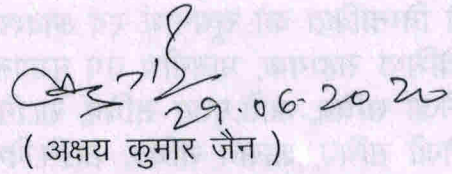 29.06.2020
( अक्षय कुमार जैन )